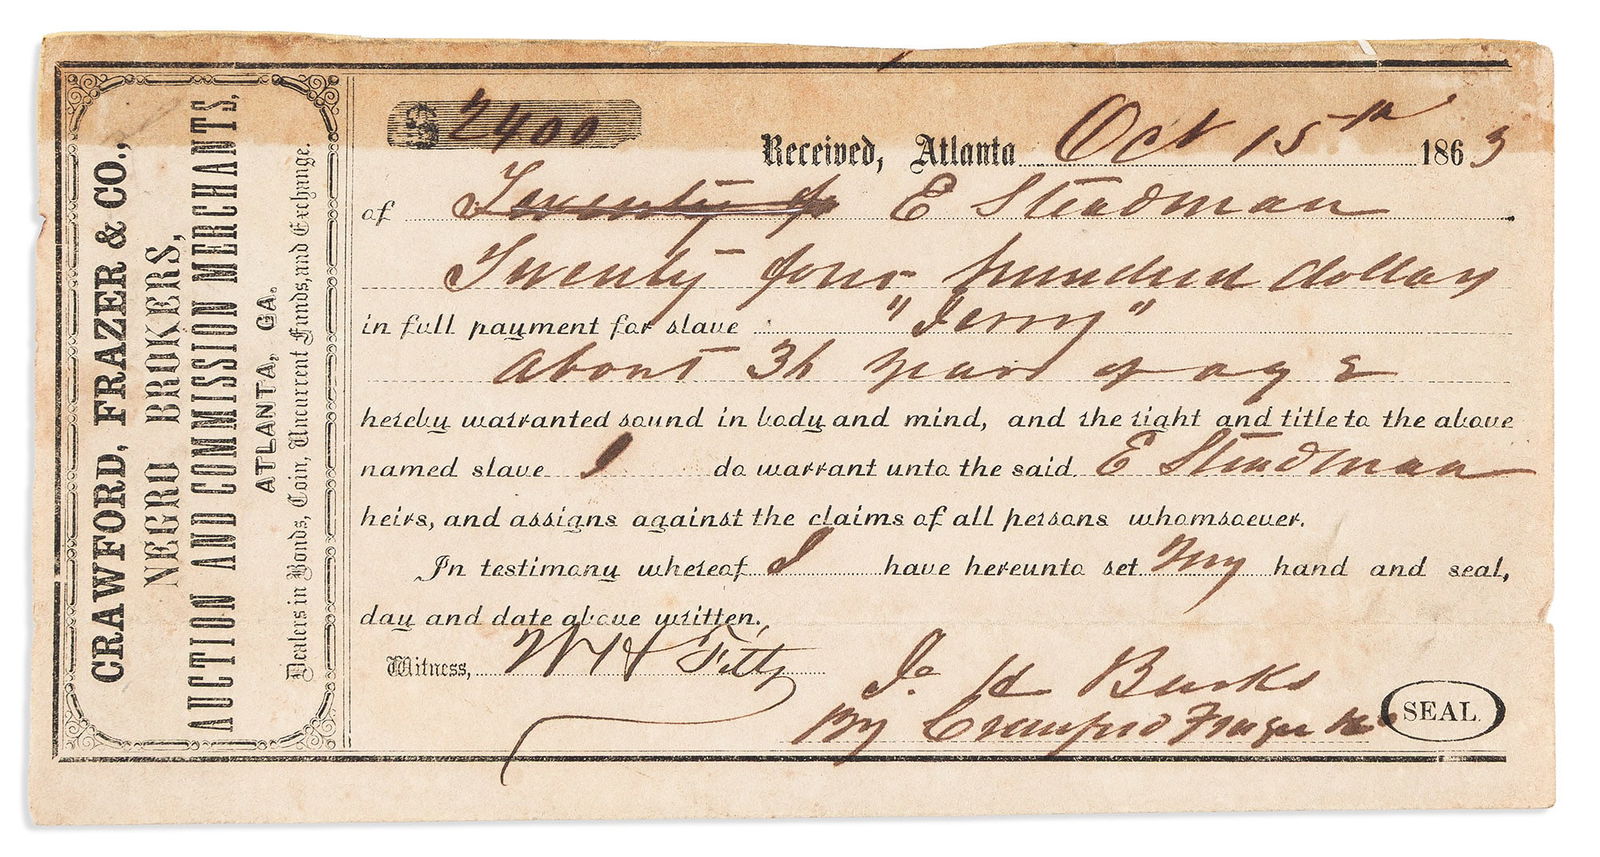 CRAWFORD, FRAZER & CO.,
NEGRO BROKERS,
AUCTION AND COMMISSION MERCHANTS,
ATLANTA, GA.
Dealers in Bonds, Coin, Uncurrent Funds, and Exchange.
$ 2400
Received, Atlanta Oct 15th 1863
of Twenty fo E Steadman
Twenty four hundred dollars
in full payment for slave "Jerry"
about 36 years of age
hereby warranted sound in body and mind, and the right and title to the above
named slave I do warrant unto the said E Steadman
heirs, and assigns against the claims of all persons whomsoever.
In testimony whereof I have hereunto set my hand and seal,
day and date above written.
Witness, W H Fitts
H Burks
By Crawford Frazer & Co
SEAL.